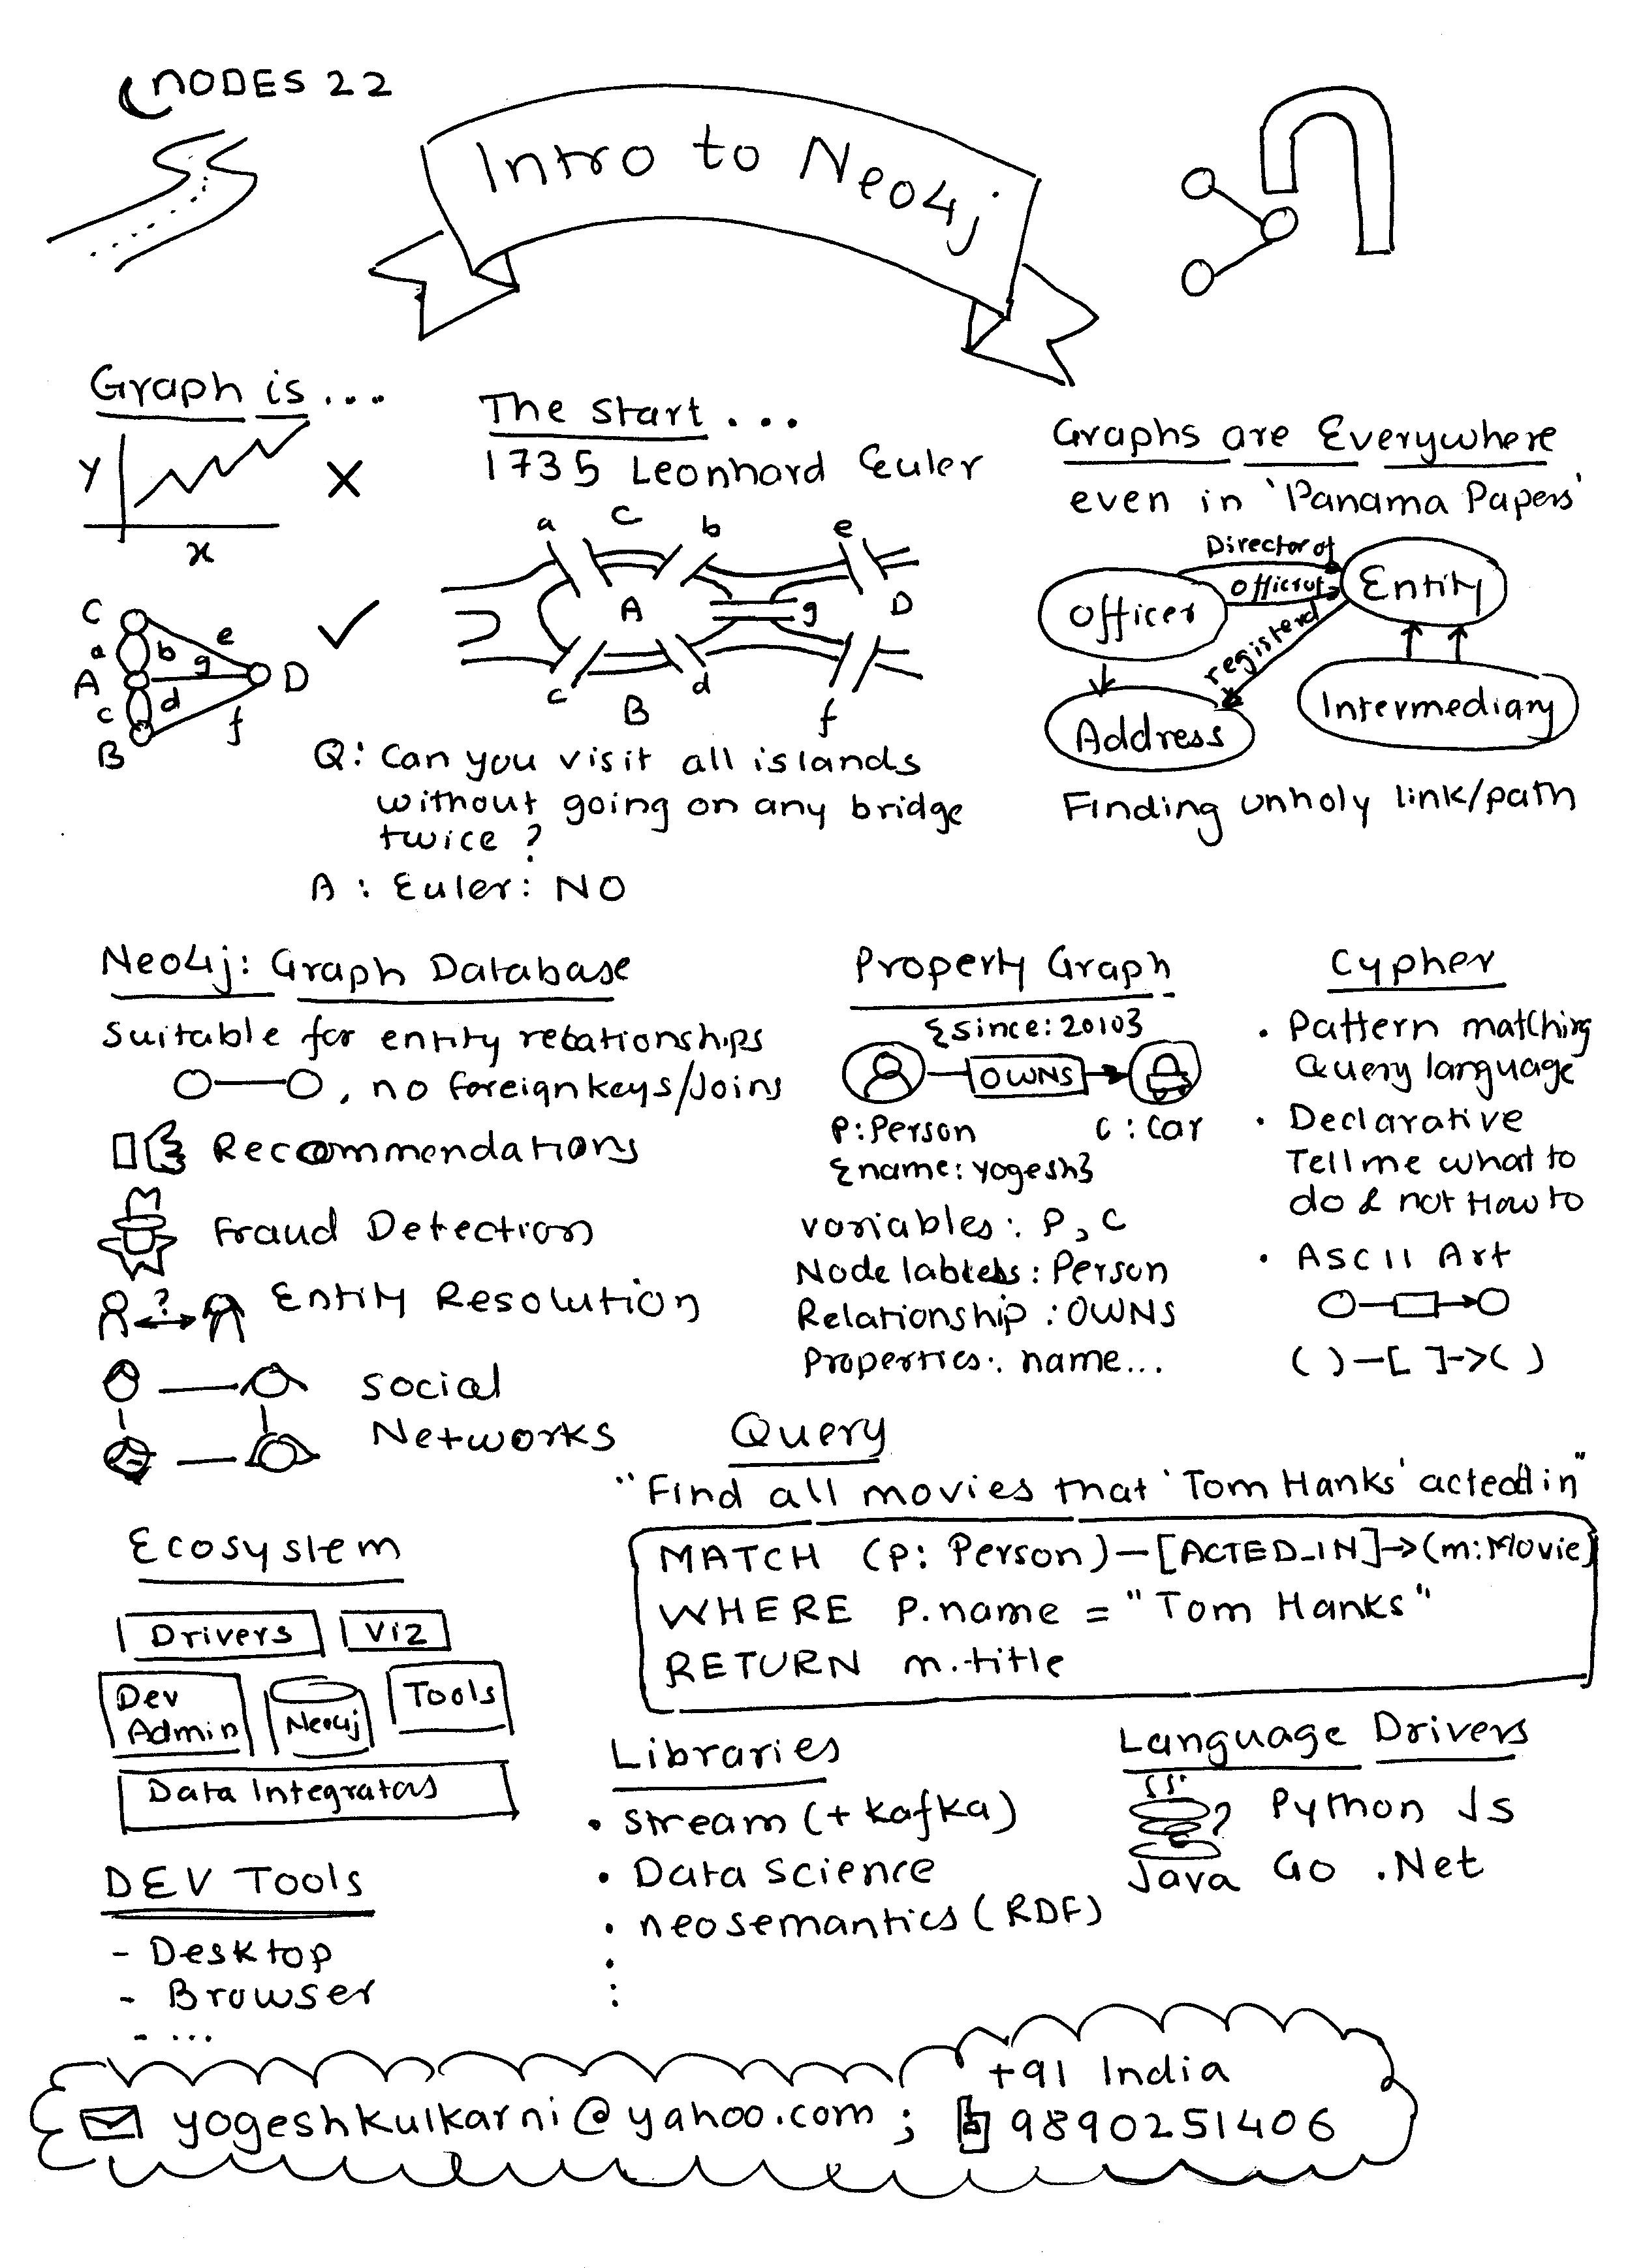 NODES 22
Intro to Neo4j
Graph is...
y
x
X
C
a b e
g
A D
c d
f
B
The Start...
1735 Leonhard Euler
a C b e
A g D
c B d f
Q: Can you visit all islands
without going on any bridge
twice?
A: Euler: NO
Graphs are Everywhere
even in 'Panama Papers'
Director of
Officer Entity
registered
Address Intermediary
Finding unholy link/path
Neo4j: Graph Database
Suitable for entity relationships
, no foreign keys/Joins
Recommendations
Fraud Detection
? Entity Resolution
Social
Networks
Property Graph
{since:2010}
OWNS
P:Person C:Car
{name:yogesh}
variables: P, C
Node lablels: Person
Relationship: OWNS
Properties: name...
Cypher
• Pattern matching
Query language
• Declarative
Tell me what to
do & not How to
• ASCII Art
( )-[ ]->( )
Query
"Find all movies that 'Tom Hanks' acted in"
MATCH (P: Person)-[ACTED_IN]->(m:Movie)
WHERE P.name = "Tom Hanks"
RETURN m.title
Ecosystem
Drivers Viz
Dev
Admin Neo4j Tools
Data Integrators
DEV Tools
- Desktop
- Browser
- ...
Libraries
• Stream (+ Kafka)
• Data Science
• neosemantics (RDF)
Language Drivers
Python Js
Java Go .Net
+91 India
yogeshkulkarni@yahoo.com; 9890251406